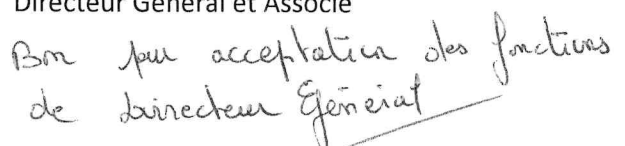 Directeur Général et Associé
Bon pour acceptation des fonctions
de Directeur Général